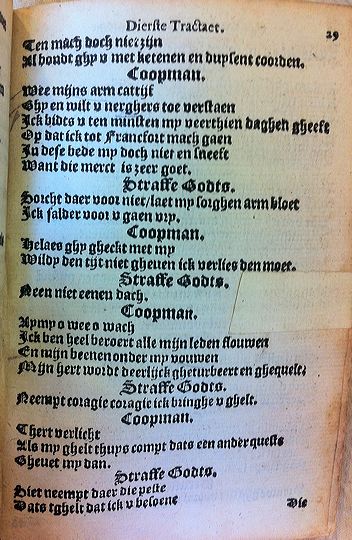 Dierste Tractaet. 29
Ten mach doch niet zijn
Al houdt ghy v met ketenen en duysent coorden.
Coopman.
Wee mijns arm catijf
Ghy en wilt v nerghers toe verstaen
Ick bidts v ten minsten my veerthien daghen gheeft
Op dat ick tot Francfort mach gaen
In dese bede my doch niet en sneeft
Want die merct is zeer goet.
Straffe Godts.
Sorcht daer voor niet/laet my sorghen arm bloet
Ick salder voor v gaen vrp.
Coopman.
Helaes ghy gheckt met my
Wildy den tijt niet gheuen ick verlies den moet.
Straffe Godts.
Neen niet eenen dach.
Coopman.
Aymy o wee o wach
Ick ben heel beroert alle mijn leden flouwen
En mijn beenen onder my vouwen
Mijn hert wordt deerlijck gheturbeert en ghequelt.
Straffe Godts.
Neempt coragie coragie ick bringhe v ghelt.
Coopman.
Thert verlicht
Als my ghelt thuys compt dats een ander queste
Gheuet my dan.
Straffe Godts.
Siet neempt daer die peste
Dats tghelt dat ick v besoene
Die